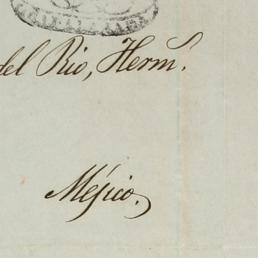 del Rio, Herm.s
Méjico.